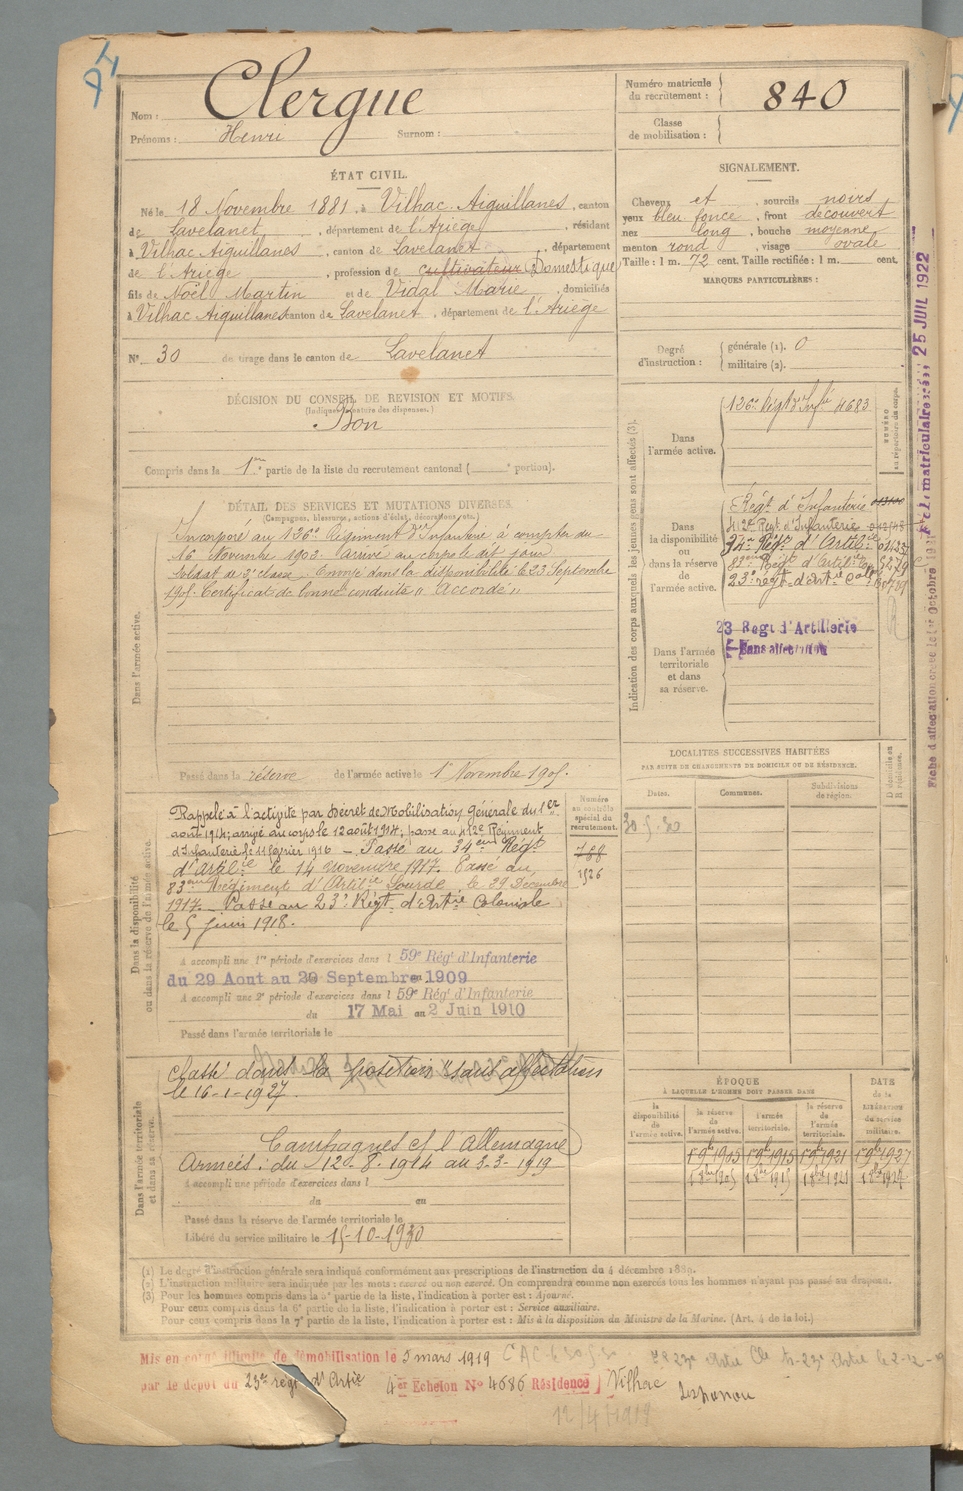 Nom : Clergue
Prénoms : Henri Surnom :
Numéro matricule du recrutement : 840
Classe de mobilisation :
ÉTAT CIVIL.
Né le 18 Novembre 1881, à Vilhac Aiguillanes, canton
de Lavelanet, département de l'Ariège, résidant
à Vilhac Aiguillanes, canton de Lavelanet, département
de l'Ariège, profession de cultivateur Domestique
fils de Noël Martin et de Vidal Marie, domiciliés
à Vilhac Aiguillanes canton de Lavelanet, département de l'Ariège
N° 30 de tirage dans le canton de Lavelanet
SIGNALEMENT.
Cheveux et, sourcils noirs
yeux bleu foncé, front découvert
nez long, bouche moyenne
menton rond, visage ovale
Taille : 1 m. 72 cent. Taille rectifiée : 1 m. cent.
MARQUES PARTICULIÈRES :
Degré d'instruction : générale (1). 0
militaire (2).
DÉCISION DU CONSEIL DE REVISION ET MOTIFS.
(Indiquer la nature des dispenses.)
Bon
Compris dans la 1re partie de la liste du recrutement cantonal ( e portion).
DÉTAIL DES SERVICES ET MUTATIONS DIVERSES.
(Campagnes, blessures, actions d'éclat, décorations, etc.)
Dans l'armée active.
Incorporé au 126e Régiment d'Infanterie à compter du
16 Novembre 1903. Arrivé au corps le dit jour
soldat de 2e classe. Envoyé dans la disponibilité le 23 Septembre
1905. Certificat de bonne conduite "Accordé"
Passé dans la réserve de l'armée active le 1er Novembre 1905.
Indication des corps auxquels les jeunes gens sont affectés (3).
NUMÉRO au répertoire du corps.
Dans l'armée active.
126e Régt d'Infie 4683
Dans la disponibilité ou dans la réserve de l'armée active.
Régt d'Infanterie
412e Régt d'Infanterie
34e Régt d'Artil.ie
83eme Régt d'Artil.ie
23e régt d'Art.ie Col.
Dans l'armée territoriale et dans sa réserve.
23 Regt d'Artillerie
Sans affectation
Fiche matriculaire 25 JUIL 1922
Fiche d'affectation créée le 1er Octobre
LOCALITÉS SUCCESSIVES HABITÉES
PAR SUITE DE CHANGEMENTS DE DOMICILE OU DE RÉSIDENCE.
Dates. Communes. Subdivisions de région. D domicile ou R résidence.
30.5.30
Dans la disponibilité ou dans la réserve de l'armée active.
Numéro au contrôle spécial du recrutement.
788
1526
Rappelé à l'activité par Décret de Mobilisation Générale du 1er
août 1914; arrivé au corps le 12 août 1914; passé au 412e Régiment
d'Infanterie le 11 février 1916 — Passé au 34eme Régt
d'Artil.ie le 14 novembre 1917. Passé au
83eme Régiment d'Artil.ie Lourde le 29 Décembre
1917. Passé au 23e Régt d'Art.ie Coloniale
le 5 juin 1918.
A accompli une 1re période d'exercices dans l 59e Rég' d'Infanterie
du 29 Aout au 20 Septembre 1909
A accompli une 2e période d'exercices dans l 59e Rég' d'Infanterie
du 17 Mai au 2 Juin 1910
Passé dans l'armée territoriale le
Dans l'armée territoriale et dans sa réserve.
Classé dans la position sans affectation
le 16-1-1927.
Campagnes c/ l'Allemagne
Armées : du 12-8-1914 au 5-3-1919
A accompli une période d'exercices dans l
du au
Passé dans la réserve de l'armée territoriale le
Libéré du service militaire le 15-10-1930
ÉPOQUE
À LAQUELLE L'HOMME DOIT PASSER DANS
DATE de la LIBÉRATION du service militaire.
la disponibilité de l'armée active. la réserve de l'armée active. l'armée territoriale. la réserve de l'armée territoriale.
1er 9bre 1905 1er 9bre 1915 1er 9bre 1921 1er 9bre 1927
(1) Le degré d'instruction générale sera indiqué conformément aux prescriptions de l'instruction du 4 décembre 1889.
(2) L'instruction militaire sera indiquée par les mots : exercé ou non exercé. On comprendra comme non exercés tous les hommes n'ayant pas passé au drapeau.
(3) Pour les hommes compris dans la 5e partie de la liste, l'indication à porter est : Ajourné.
Pour ceux compris dans la 6e partie de la liste, l'indication à porter est : Service auxiliaire.
Pour ceux compris dans la 7e partie de la liste, l'indication à porter est : Mis à la disposition du Ministre de la Marine. (Art. 4 de la loi.)
Mis en congé illimité de démobilisation le 5 mars 1919
par le dépôt du 23e regt d'Artie 4er Echelon N° 4686 Résidence Vilhac
12/4/1919